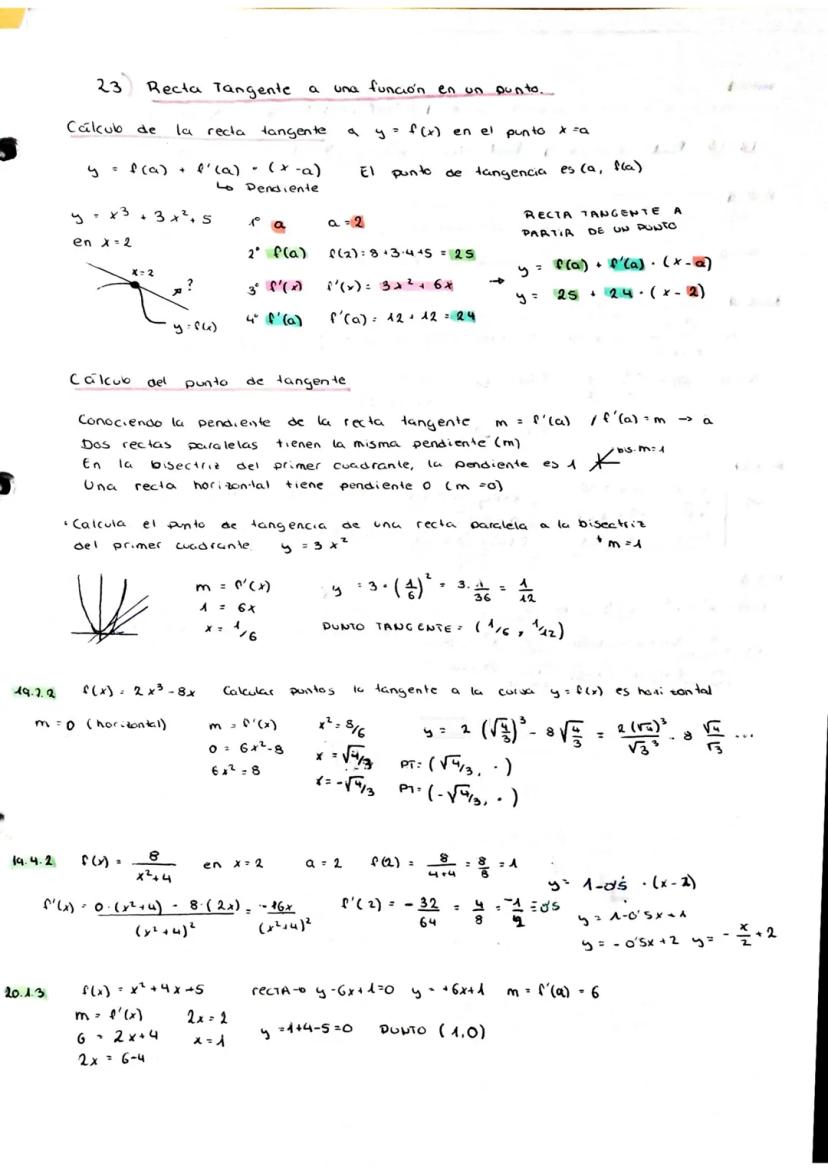 23) Recta Tangente a una función en un punto.
Cálculo de la recta tangente a y = f(x) en el punto x=a
y = f(a) + f'(a) · (x-a) El punto de tangencia es (a, f(a)
↳ Pendiente
y = x³ + 3x² + 5
en x = 2
x=2
?
y=f(x)
1º a a = 2
2º f(a) f(2) = 8 + 3·4+5 = 25
3º f'(x) f'(x) = 3x² + 6x
4º f'(a) f'(a) = 12 + 12 = 24
RECTA TANGENTE A
PARTIR DE UN PUNTO
→ y = f(a) + f'(a) · (x-a)
y = 25 + 24 · (x-2)
Cálculo del punto de tangente
Conociendo la pendiente de la recta tangente m = f'(a) / f'(a) = m → a
Dos rectas paralelas tienen la misma pendiente (m)
En la bisectriz del primer cuadrante, la pendiente es 1 bis. m=1
Una recta horizontal tiene pendiente 0 (m=0)
· Calcula el punto de tangencia de una recta paralela a la bisectriz
del primer cuadrante. y = 3x² m=1
m = f'(x)
1 = 6x
x = 1/6
y = 3 · (1/6)² = 3 · 1/36 = 1/12
PUNTO TANGENTE = (1/6, 1/12)
19.2.2 f(x) = 2x³ - 8x Calcular puntos la tangente a la curva y = f(x) es horizontal
m = 0 (horizontal)
m = f'(x)
0 = 6x²-8
6x² = 8
x² = 8/6
x = √4/3
x = -√4/3
y = 2 (√4/3)³ - 8√4/3 = 2(√4)³/√3³ - 8 √4/√3 ...
PT: (√4/3, ·)
PT: (-√4/3, ·)
19.4.2 f(x) = 8/x²+4 en x = 2 a = 2 f(2) = 8/4+4 = 8/8 = 1
f'(x) = 0·(x²+4) - 8·(2x)/(x²+4)² = -16x/(x²+4)² f'(2) = -32/64 = 4/8 = -1/2 = 0'5
y = 1-0'5 · (x-2)
y = 1-0'5x+1
y = -0'5x+2 y = -x/2+2
20.1.3 f(x) = x²+4x-5 recta→ y-6x+1=0 y = +6x+1 m = f'(a) = 6
m = f'(x)
6 = 2x+4
2x = 6-4
2x = 2
x = 1
y = 1+4-5 = 0 PUNTO (1,0)